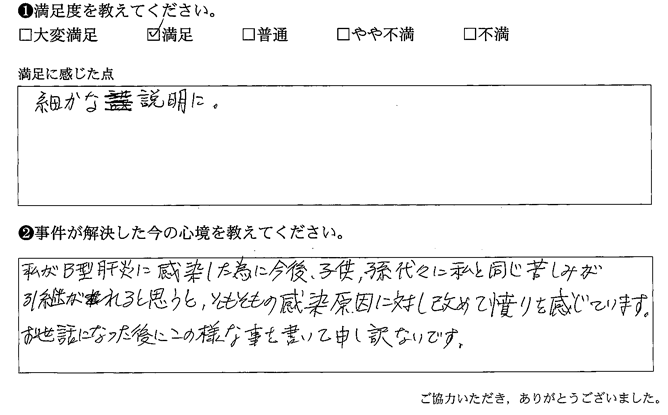 ❶満足度を教えてください。
□大変満足 ☑満足 □普通 □やや不満 □不満
満足に感じた点
細かな説明に。
❷事件が解決した今の心境を教えてください。
私がB型肝炎に感染した為に今後、子供、孫代々に私と同じ苦しみが
引継がれると思うと、そもそもの感染原因に対し改めて憤りを感じています。
お世話になった後にこの様な事を書いて申し訳ないです。
ご協力いただき，ありがとうございました。